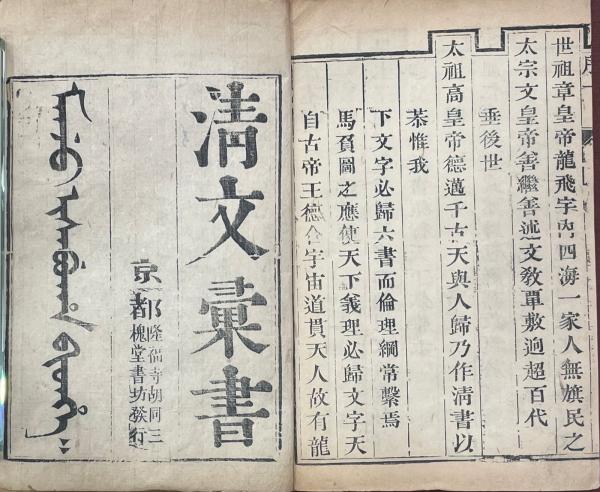 ᠮᠠᠨᠵᡠ ᡳᠰᠠᠪᡠᡥᠠ ᠪᡳᡨᡥᡝ
京都隆福寺胡同三
槐堂書坊發行
清文彙書
自古帝王德合宇宙道貫天人故有龍
馬負圖之應使天下義理必歸文字天
下文字必歸六書而倫理綱常繫焉
恭惟我
太祖高皇帝德邁千古天與人歸乃作清書以
垂後世
太宗文皇帝善繼善述文敎覃敷逈超百代
世祖章皇帝龍飛宇內四海一家人無旗民之